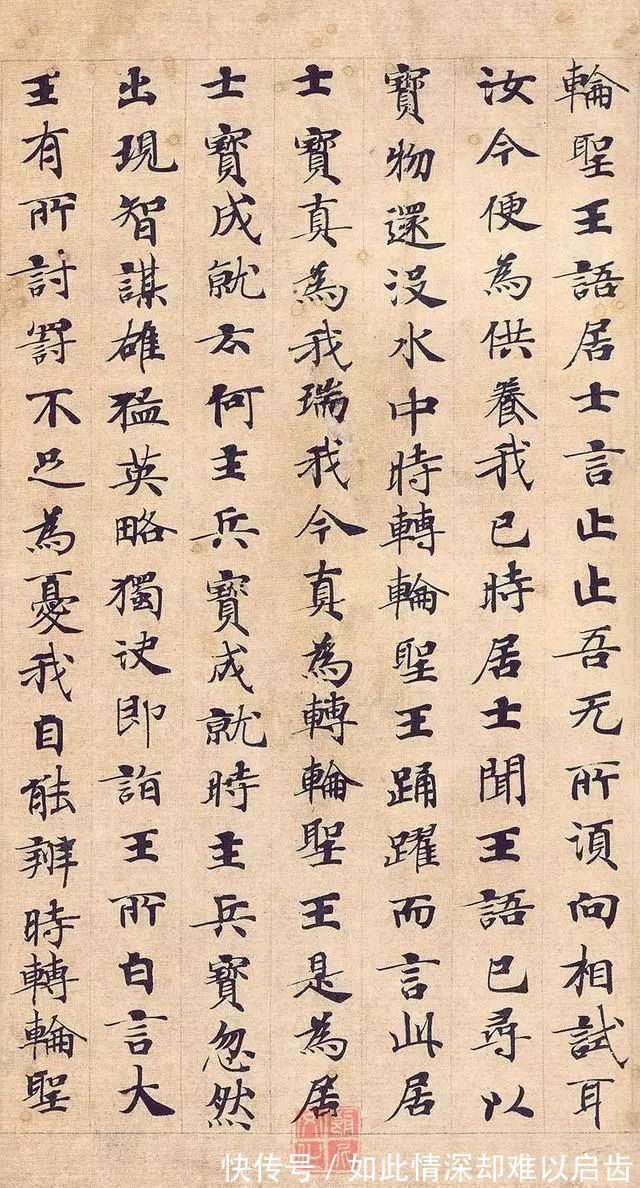 輪聖王語居士言止止吾无所湏向相試耳
汝今便為供養我已時居士聞王語已尋以
寶物還没水中時轉輪聖王踊躍而言此居
士寶真為我瑞我今真為轉輪聖王是為居
士寶成就云何主兵寶成就時主兵寶忽然
出現智謀雄猛英略獨决即詣王所白言大
王有所討罸不足為憂我自能辦時轉輪聖
快传号 / 如此情深却难以启齿